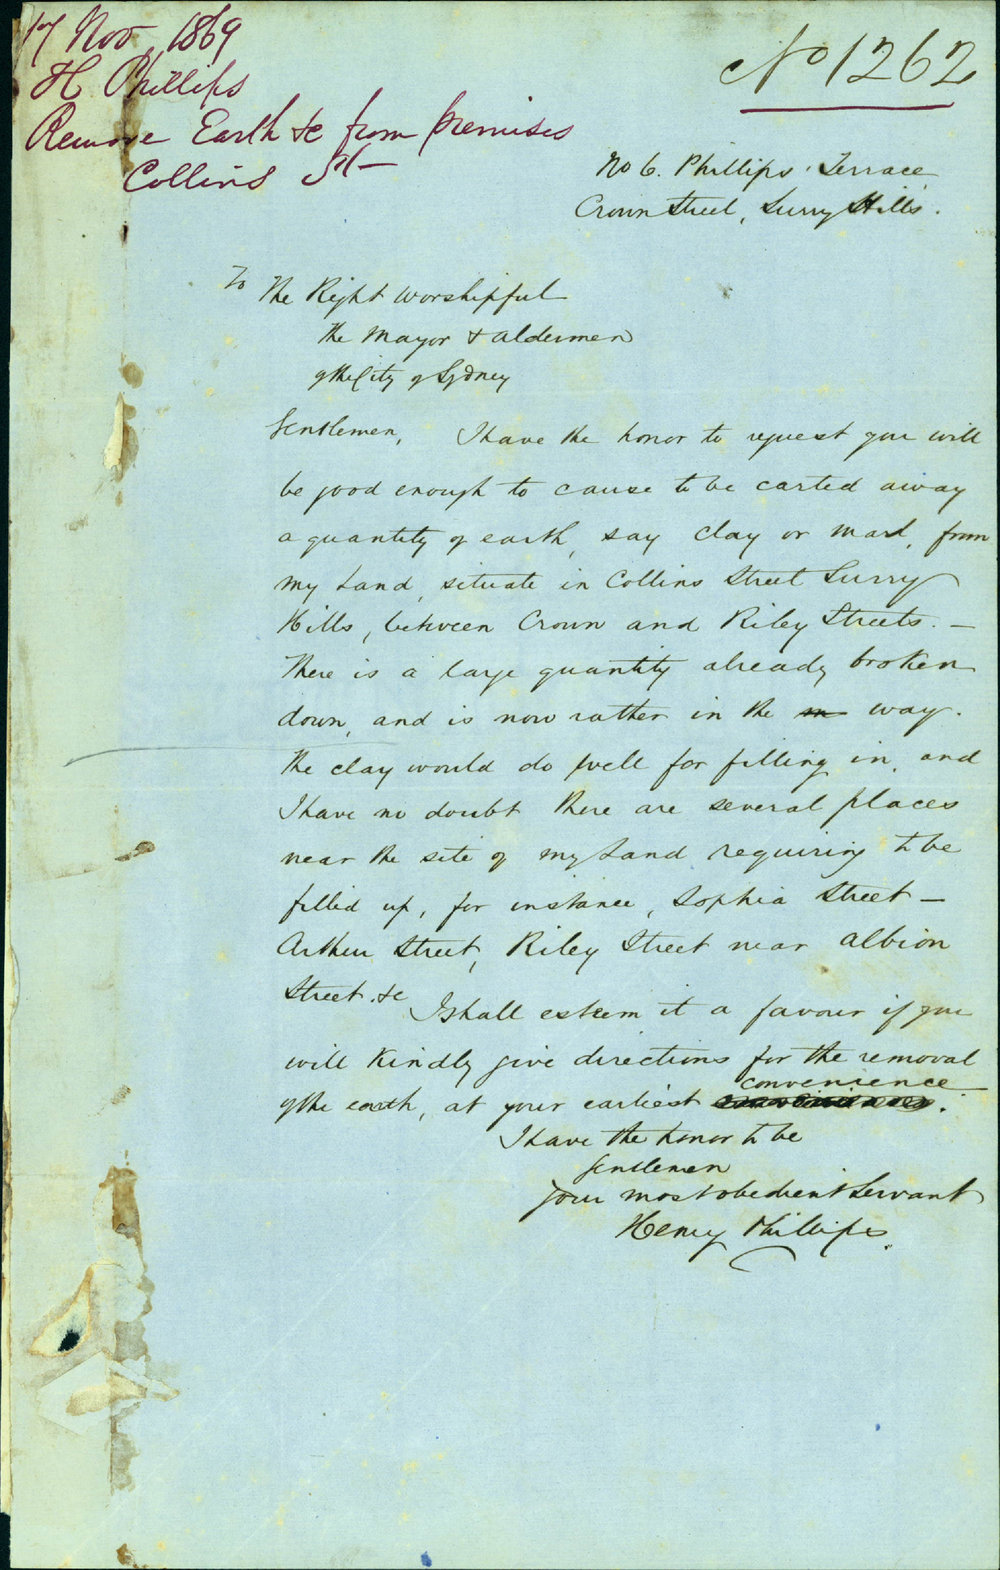 17 Nov, 1869
H Phillips
Remove Earth &c from premises
Collins St
No 1262
No 6. Phillips' Terrace
Crown Street, Surry Hills.
To The Right Worshipful
the Mayor & Aldermen
of the City of Sydney
Gentlemen, I have the honor to request you will
be good enough to cause to be carted away
a quantity of earth, say clay or marl, from
my Land, situate in Collins Street Surry
Hills, between Crown and Riley Streets. —
There is a large quantity already broken
down, and is now rather in the way.
The clay would do well for filling in, and
I have no doubt there are several places
near the site of my Land requiring to be
filled up, for instance, Sophia Street —
Arthur Street, Riley Street near Albion
Street. &c
I shall esteem it a favour if you
will kindly give directions for the removal
of the earth, at your earliest convenience.
I have the honor to be
Gentlemen
Your most obedient Servant
Henry Phillips.